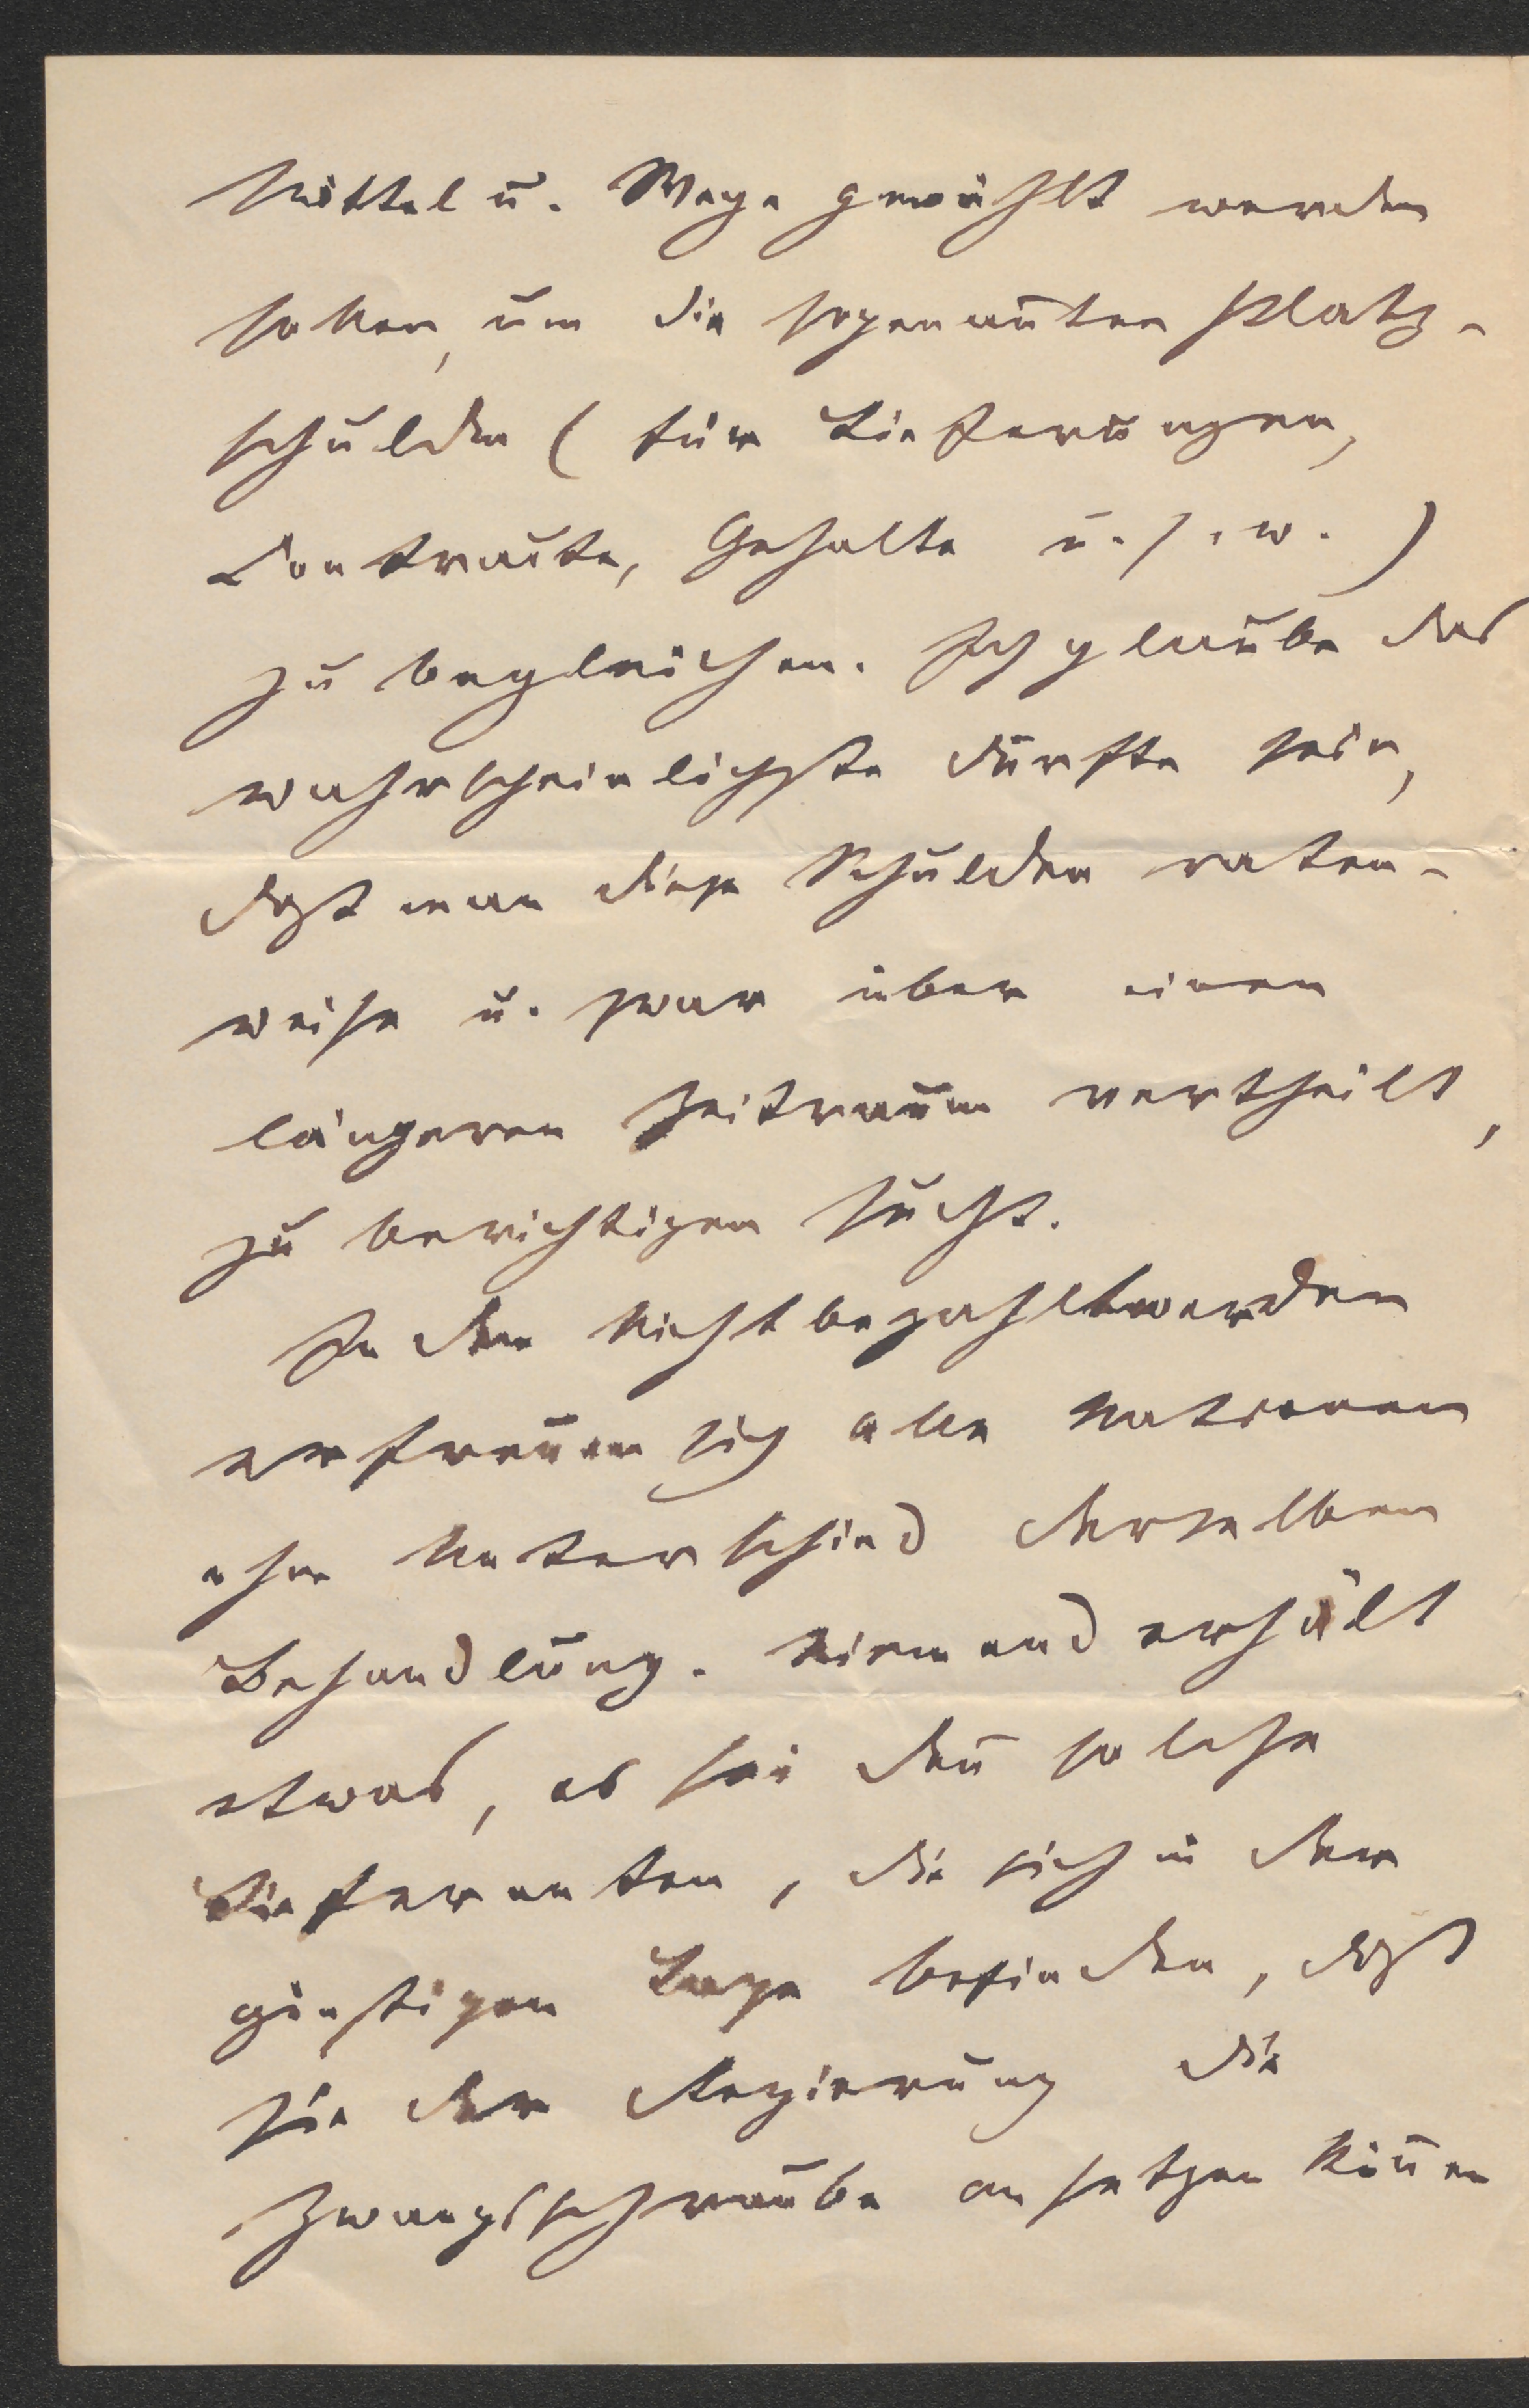 Mittel u. Wege gewählt werden
sollen, um die sogenan̅ten Platz-
schulden (für Lieferungen,
Contracte, Gehalte u. s. w.)
zu begleichen. Ich glaube das
wahrscheinlichste dürfte sein,
daß man diese Schulden raten-
weise u. zwar über einen
längeren Zeitraum vertheilt,
zu berichtigen sucht.
In dem Nichtbezahltwerden
erfreuen sich alle Nationen
ohne Unterschied derselben
Behandlung. Niemand erhält
etwas, es sei den̅ solche
Lieferanten, die sich in der
günstigen Lage befinden, daß
sie der Regierung die
Zwangsschraube ansetzen kön̅en